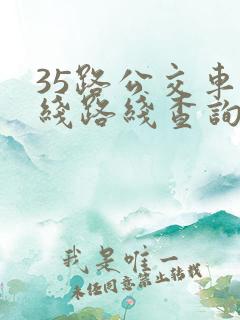 35路公交車
綫路綫查詢
我是唯一
未經同意禁止轉載